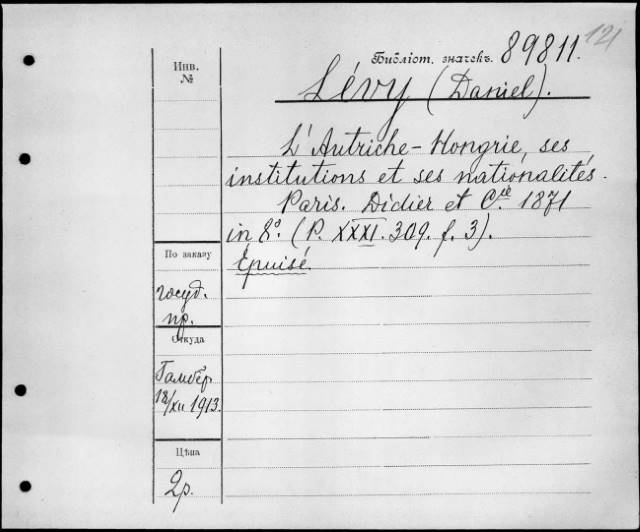 121
Библіот. значекъ. 89811.
Инв.
№
Lévy (Daniel).
L'Autriche-Hongrie, ses
institutions et ses nationalités.
Paris. Didier et Cie. 1871
in 8º. (P. XXXI. 309. f. 3).
Épuisé
По заказу
госуд.
пр.
Откуда
Гамбер
18/XII 1913.
Цѣна
2р.